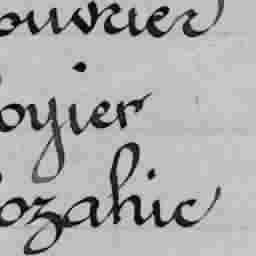 ouvrier
oyier
ozahic